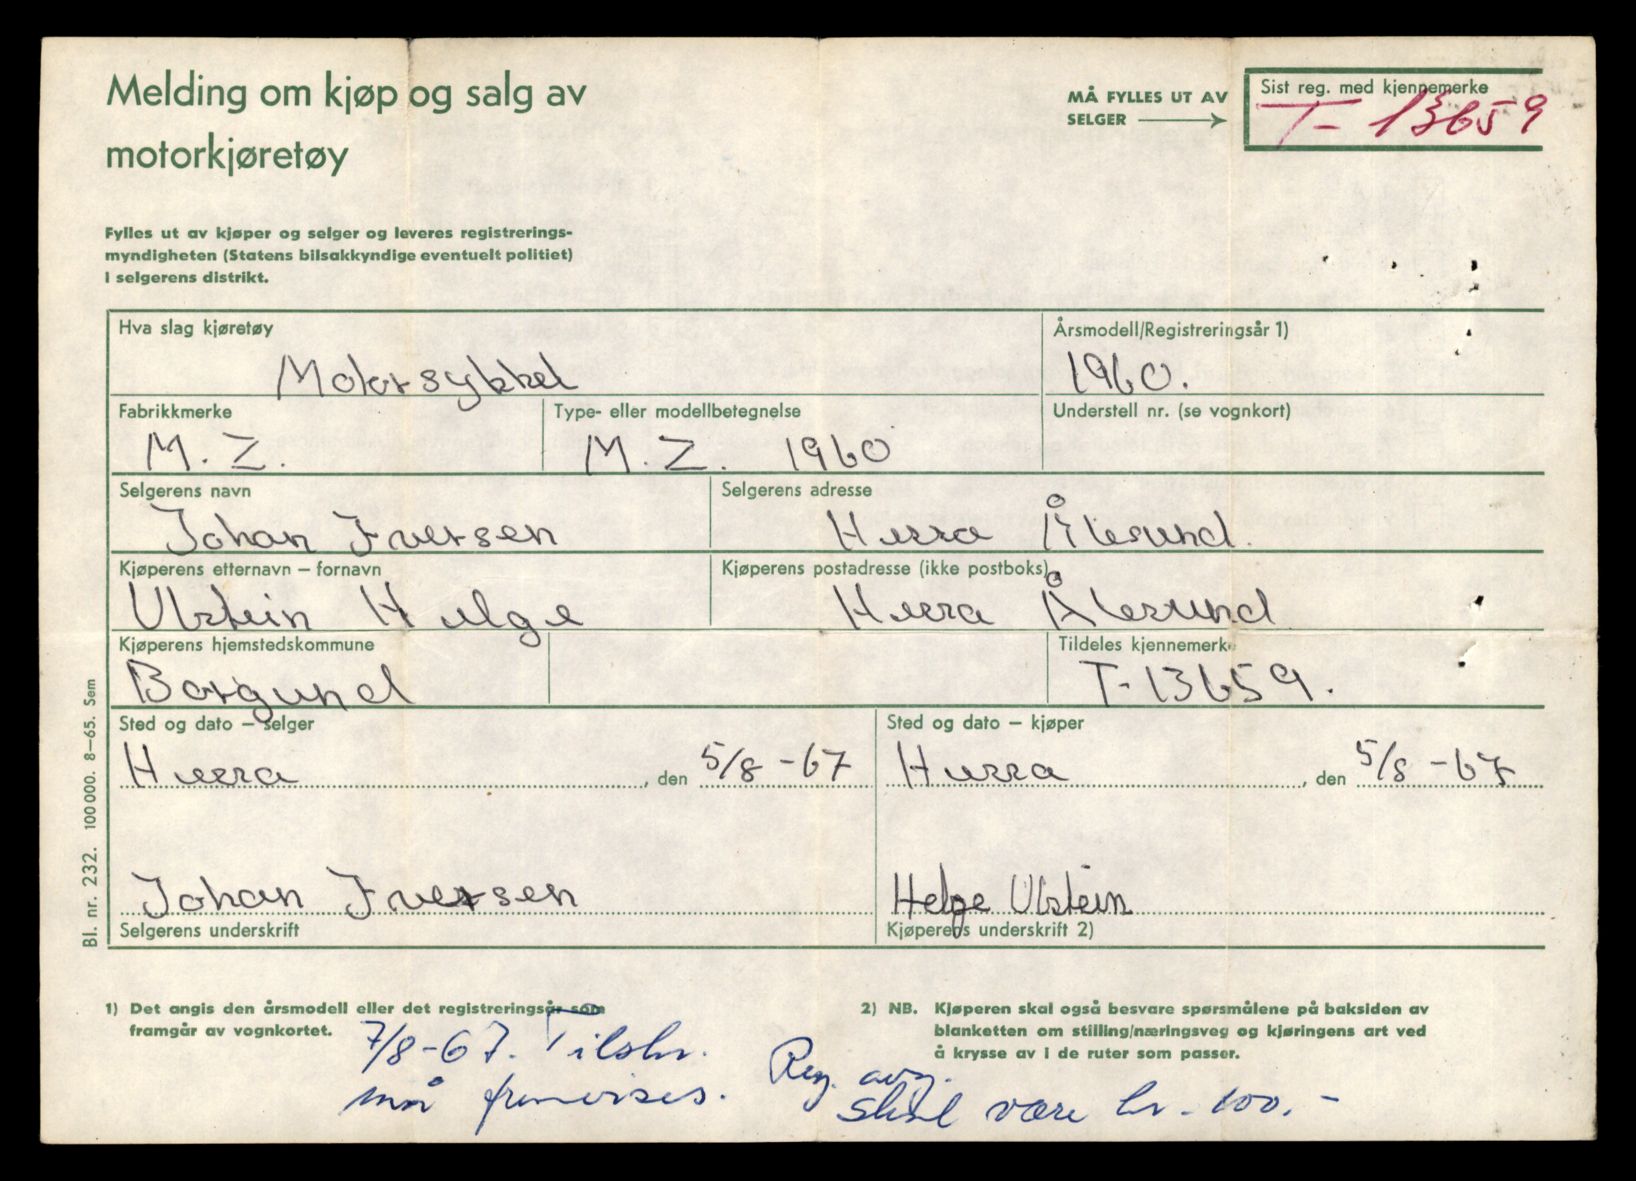 Melding om kjøp og salg av
motorkjøretøy
MÅ FYLLES UT AV
SELGER
Sist reg. med kjennemerke
T- 13659
Fylles ut av kjøper og selger og leveres registrerings-
myndigheten (Statens bilsakkyndige eventuelt politiet)
i selgerens distrikt.
Hva slag kjøretøy
Motorsykkel
Årsmodell/Registreringsår 1)
1960.
Fabrikkmerke
M. Z.
Type- eller modellbetegnelse
M. Z. 1960
Understell nr. (se vognkort)
Selgerens navn
Johan Iversen
Selgerens adresse
Hessa Ålesund.
Kjøperens etternavn – fornavn
Ulstein Helge
Kjøperens postadresse (ikke postboks)
Hessa Ålesund
Kjøperens hjemstedskommune
Borgund
Tildeles kjennemerke
T-13659.
Sted og dato – selger
Hessa, den 5/8 -67
Sted og dato – kjøper
Hessa, den 5/8 -67
Johan Iversen
Selgerens underskrift
Helge Ulstein
Kjøperens underskrift 2)
Bl. nr. 232. 100 000. 8–65. Sem
1) Det angis den årsmodell eller det registreringsår som
framgår av vognkortet.
2) NB. Kjøperen skal også besvare spørsmålene på baksiden av
blanketten om stilling/næringsveg og kjøringens art ved
å krysse av i de ruter som passer.
7/8-67. Tilshr.
må fremvises.
Reg. avg.
skal være kr. 100.-